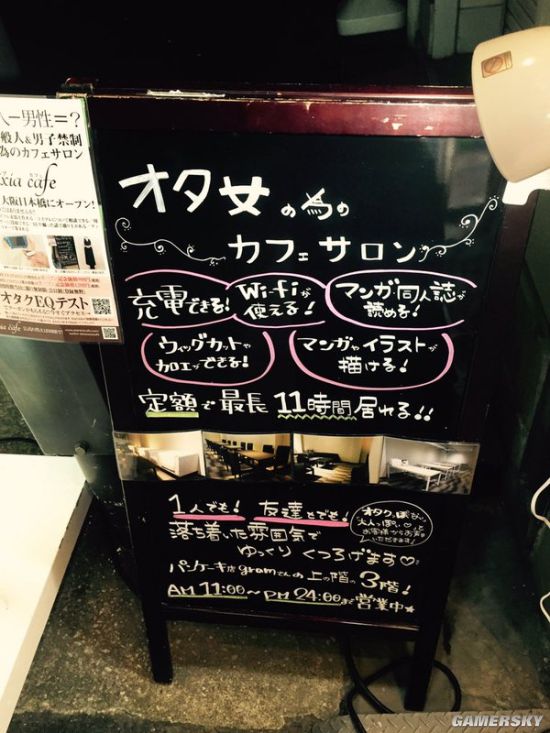 一男性=?
般人&男子禁制
為のカフェサロン
xia cafe
大阪日本橋にオープン!
オタクEQテスト
オタ女の為の
カフェサロン
充電できる!
Wi-fiが
使える!
マンガ同人誌が
読める!
ウィッグカットや
加工ができる!
マンガやイラストが
描ける!
定額で最長11時間居れる!!
1人でも!友達とでも!
落ち着いた雰囲気で
ゆっくりくつろげます♡
オタクっぽくない
大人っぽい♡と
お客様からお声
いただきます!
パンケーキ店gramさんの上の階の3階!
AM 11:00~PM 24:00まで営業中★
GAMERSKY